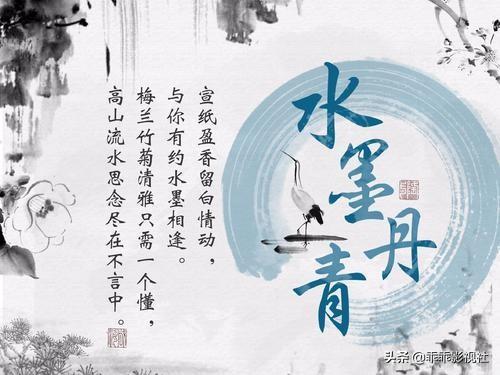 水墨丹青
宣纸盈香留白情动，
与你有约水墨相逢。
梅兰竹菊清雅只需一个懂，
高山流水思念尽在不言中。
头条@菲菲影视社